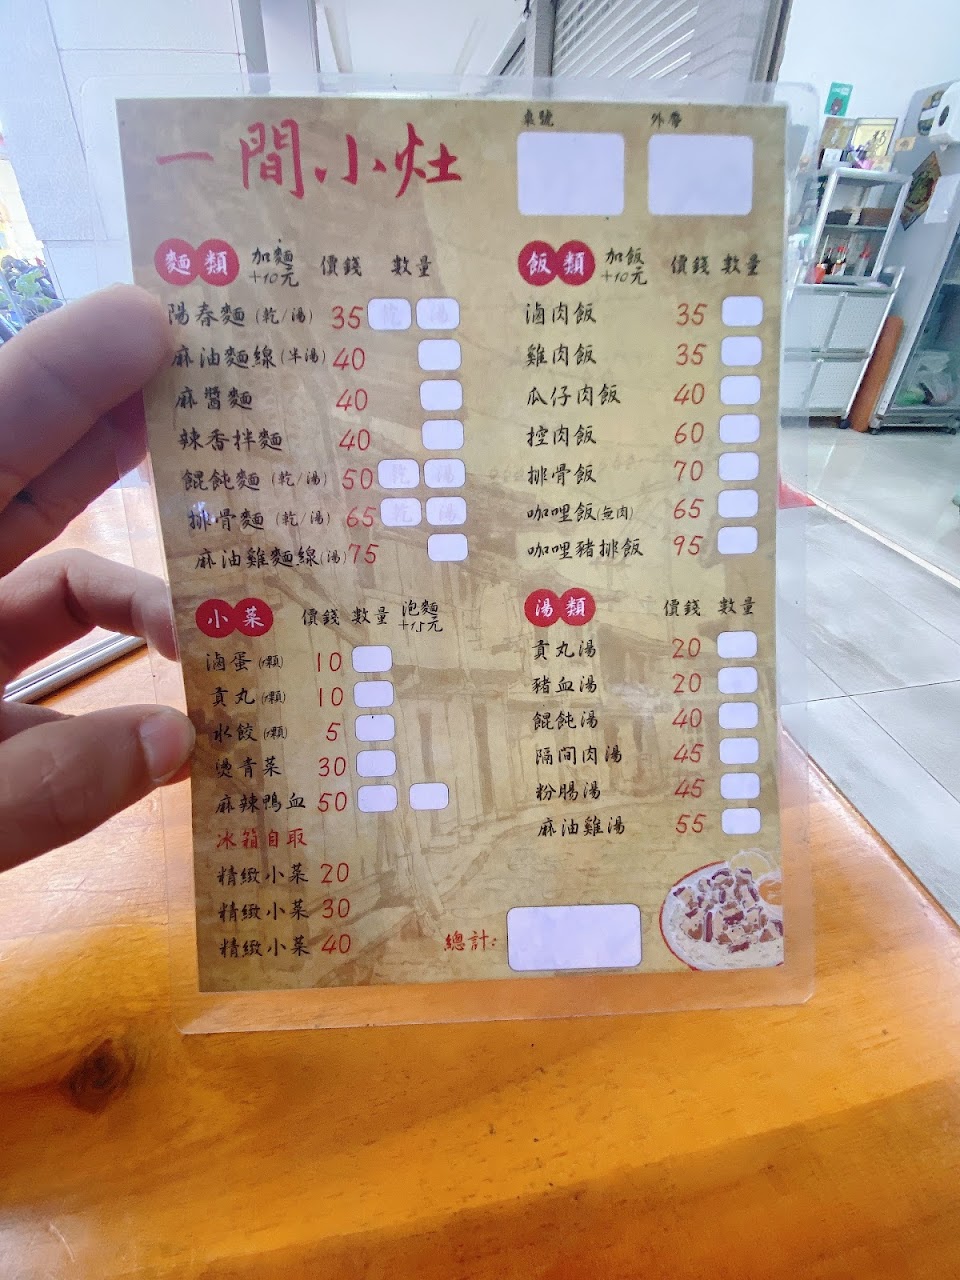 一間小灶
桌號
外帶
麵類 加麵+10元 價錢 數量
陽春麵(乾/湯) 35 乾 湯
麻油麵線(半湯) 40
麻醬麵 40
辣香拌麵 40
餛飩麵(乾/湯) 50 乾 湯
排骨麵(乾/湯) 65 乾 湯
麻油雞麵線(湯) 75
小菜 價錢 數量 泡麵+15元
滷蛋(1顆) 10
貢丸(1顆) 10
水餃(1顆) 5
燙青菜 30
麻辣鴨血 50
冰箱自取
精緻小菜 20
精緻小菜 30
精緻小菜 40
飯類 加飯+10元 價錢 數量
滷肉飯 35
雞肉飯 35
瓜仔肉飯 40
控肉飯 60
排骨飯 70
咖哩飯(無肉) 65
咖哩豬排飯 95
湯類 價錢 數量
貢丸湯 20
豬血湯 20
餛飩湯 40
隔間肉湯 45
粉腸湯 45
麻油雞湯 55
總計: